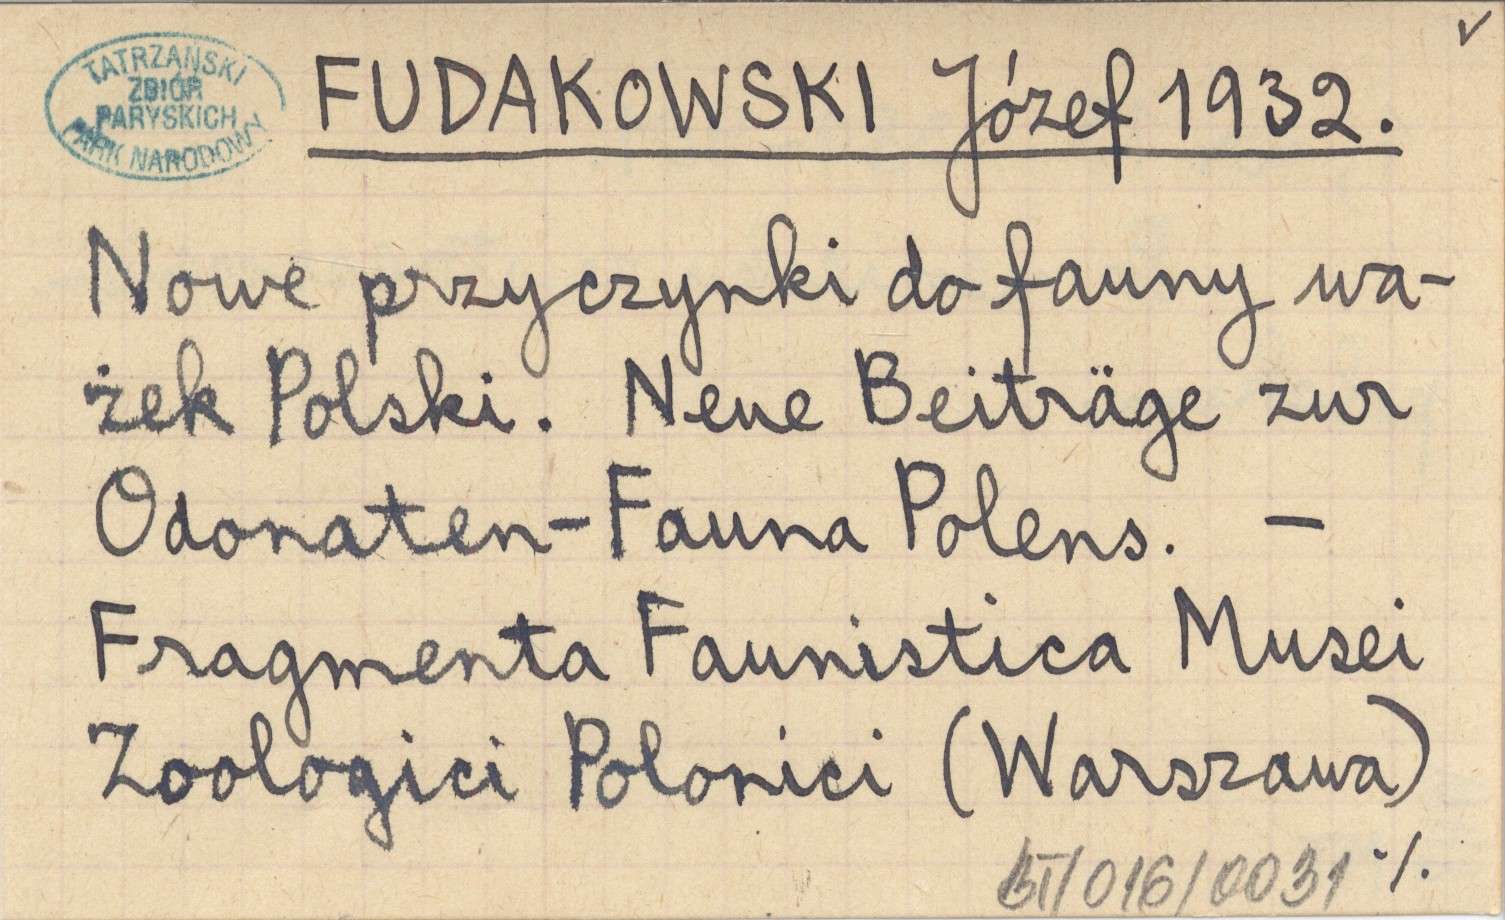 TATRZAŃSKI
ZBIÓR
PARYSKICH
PARK NARODOWY
FUDAKOWSKI Józef 1932.
Nowe przyczynki do fauny wa-
żek Polski. Neue Beiträge zur
Odonaten-Fauna Polens. –
Fragmenta Faunistica Musei
Zoologici Polonici (Warszawa)
/016/0031 ·/.